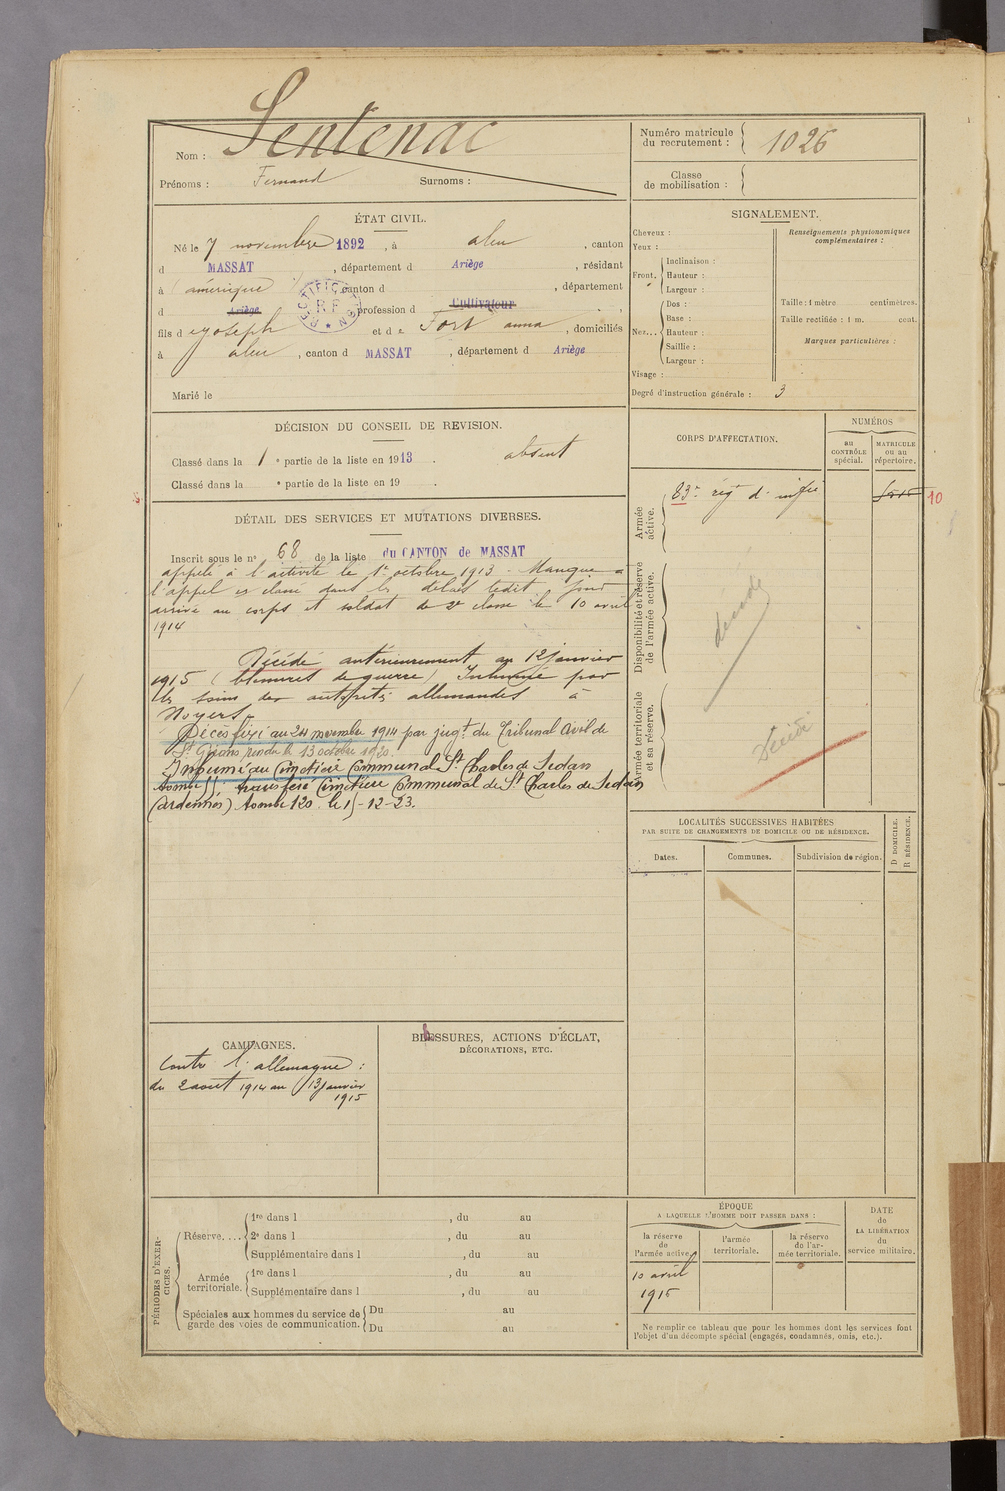 Nom : Sentenac
Prénoms : Fernand Surnoms :
Numéro matricule
du recrutement : 1026
Classe
de mobilisation :
ÉTAT CIVIL.
Né le 7 novembre 1892 , à aleu , canton
d MASSAT , département d Ariège , résidant
à (amérique) , canton d , département
d Ariège profession d Cultivateur ,
RECTIFICATION
RF
fils d e Joseph et d e Fort anna , domiciliés
à aleu , canton d MASSAT , département d Ariège
Marié le
SIGNALEMENT.
Cheveux :
Yeux :
Front.
Inclinaison :
Hauteur :
Largeur :
Nez...
Dos :
Base :
Hauteur :
Saillie :
Largeur :
Visage :
Renseignements physionomiques
complémentaires :
Taille : 1 mètre centimètres.
Taille rectifiée : 1 m. cent.
Marques particulières :
Degré d'instruction générale : 3
DÉCISION DU CONSEIL DE REVISION.
Classé dans la 1 e partie de la liste en 1913 . absent
Classé dans la e partie de la liste en 19 .
DÉTAIL DES SERVICES ET MUTATIONS DIVERSES.
Inscrit sous le n° 68 de la liste du CANTON de MASSAT
appelé à l'activité le 1er octobre 1913 - Manque à
l'appel et classé dans les délais ledit jour
arrivé au corps et soldat de 2e classe le 10 avril
1914
Décédé antérieurement au 12 janvier
1915 (blessures de guerre) Inhumé par
les soins des autorités allemandes à
Noyers.
Décès fixé au 24 novembre 1914 par jugt du Tribunal civil de
St Girons rendu le 13 octobre 1920
Inhumé au Cimetière Communal St Charles de Sedan
tombe transféré Cimetière Communal de St Charles de Sedan
(Ardennes) tombe 120 le 15-12-23.
CORPS D'AFFECTATION.
NUMÉROS
au
CONTRÔLE
spécial.
MATRICULE
ou au
répertoire.
Armée
active.
83e régt d'infie
10
Disponibilité et réserve
de l'armée active.
décédé
Armée territoriale
et sa réserve.
Décédé
LOCALITÉS SUCCESSIVES HABITÉES
PAR SUITE DE CHANGEMENTS DE DOMICILE OU DE RÉSIDENCE.
D DOMICILE.
R RÉSIDENCE.
Dates.
Communes.
Subdivision de région.
CAMPAGNES.
Contre l'allemagne :
du 2 aout 1914 au 13 janvier
1915
BLESSURES, ACTIONS D'ÉCLAT,
DÉCORATIONS, ETC.
PÉRIODES D'EXER-
CICES.
Réserve....
1re dans l , du au
2e dans l , du au
Supplémentaire dans l , du au
Armée
territoriale.
1re dans l , du au
Supplémentaire dans l , du au
Spéciales aux hommes du service de
garde des voies de communication.
Du au
Du au
ÉPOQUE
A LAQUELLE L'HOMME DOIT PASSER DANS :
la réserve
de
l'armée active.
l'armée
territoriale.
la réserve
de l'ar-
mée territoriale.
DATE
de
LA LIBÉRATION
du
service militaire.
10 avril
1916
Ne remplir ce tableau que pour les hommes dont les services font
l'objet d'un décompte spécial (engagés, condamnés, omis, etc.).